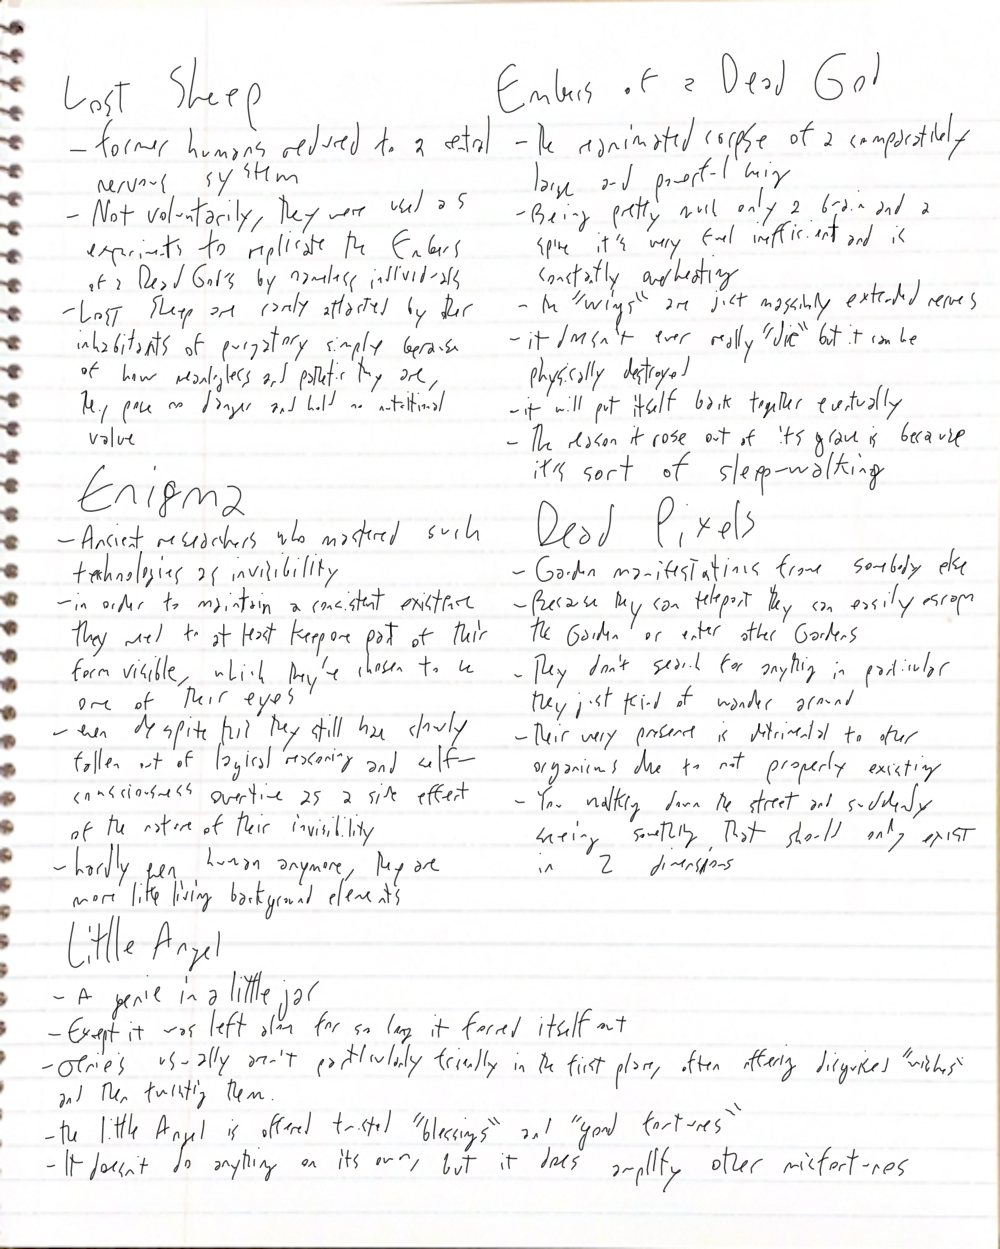 Lost Sheep
- former humans reduced to a cetral
nervous system
- Not voluntarily, they were used as
experiments to replicate the Embers
of a Dead God's by nameless individuals
- Lost Sheep are rarely attacked by other
inhabitants of purgatory simply because
of how meaningless and pathetic they are,
they pose no danger and hold no nutritional
value
Enigma
- Ancient researchers who mastered such
technologies as invisibility
- in order to maintain a consistent existence
they need to at least keep one part of their
form visible, which they've chosen to be
one of their eyes
- even despite this they still have slowly
fallen out of logical reasoning and self-
consciousness overtime as a side effect
of the nature of their invisibility
- hardly even human anymore, they are
more like living background elements
Embers of a Dead God
- the reanimated corpse of a comparatively
large and powerful being
- Being pretty much only a brain and a
spine it's very fuel inefficient and is
constantly overheating
- the "wings" are just massively extended nerves
- it doesn't ever really "die" but it can be
physically destroyed
- it will put itself back together eventually
- The reason it rose out of its grave is because
it's sort of sleep-walking
Dead Pixels
- Garden manifestations from somebody else
- Because they can teleport they can easily escape
the Garden or enter other Gardens
- They don't search for anything in particular
they just kind of wander around
- their very presence is detrimental to other
organisms due to not properly existing
- You walking down the street and suddenly
seeing something that should only exist
in 2 dimensions
Little Angel
- A genie in a little jar
- Except it was left alone for so long it forced itself out
- Genies usually aren't particularly friendly in the first place, often offering disguised "wishes"
and then twisting them.
- the little Angel is offered twisted "blessings" and "good fortunes"
- It doesn't do anything on its own, but it does amplify other misfortunes